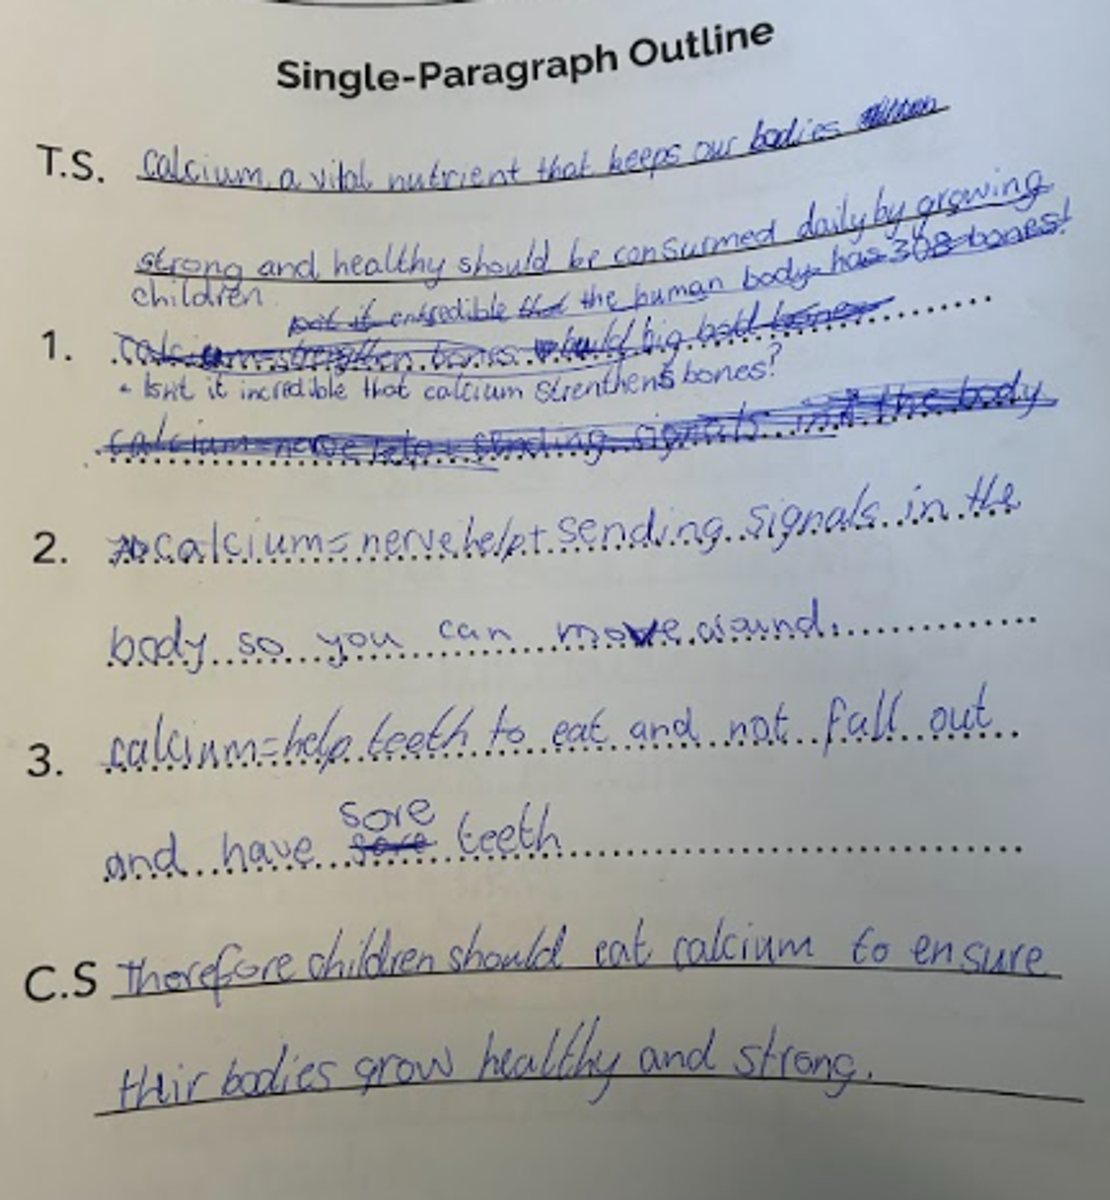 Single-Paragraph Outline
T.S. Calcium, a vital nutrient that keeps our bodies
strong and healthy should be consurmed daily by growing
children.
isnt it incredible that the human body has 308 bones!
1. Calcium=strengthen bones build big bold bones
- Isnt it incredible that calcium strenthens bones?
calcium=nerve help+sending signals in the body
2. calcium=nerve help+sending signals in the
body so you can move around.
3. calcium=help teeth to eat and not fall out
sore
and have sore teeth
C.S Therefore children should eat calcium to ensure
their bodies grow healthy and strong.